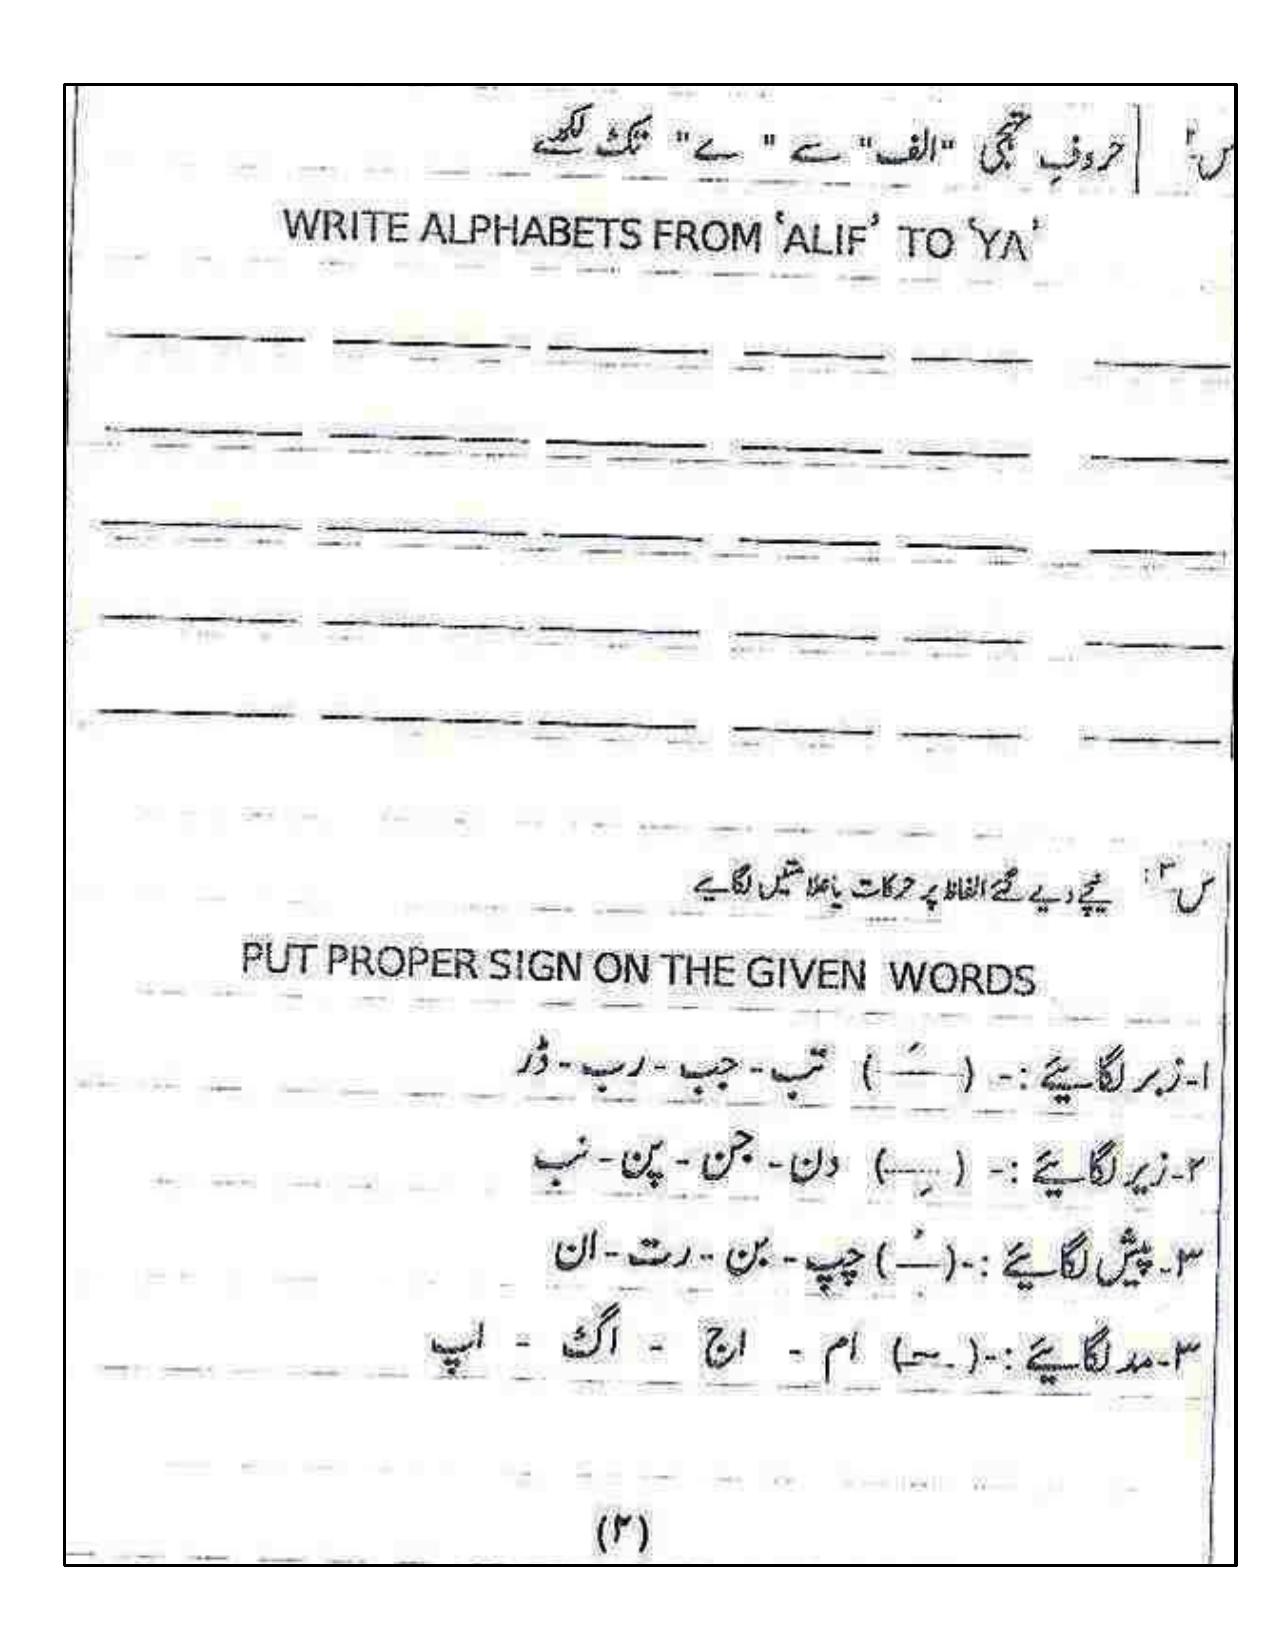 س۲ حروفِ تہجی "الف" سے "ے" تک لکھیے
WRITE ALPHABETS FROM 'ALIF' TO 'YA'
س۳: نیچے دیے گئے الفاظ پر حرکات یا علامتیں لگایے
PUT PROPER SIGN ON THE GIVEN WORDS
۱-زبر لگایئے :- ( َ ) تب - جب - رب - ڈر
۲-زیر لگایئے :- ( ِ ) دن - جن - پن - نب
۳-پیش لگایئے :- ( ُ ) چپ - بن - رت - ان
۳-مد لگایئے :- ( ٓ ) ام - اج - اگ - اپ
(۲)